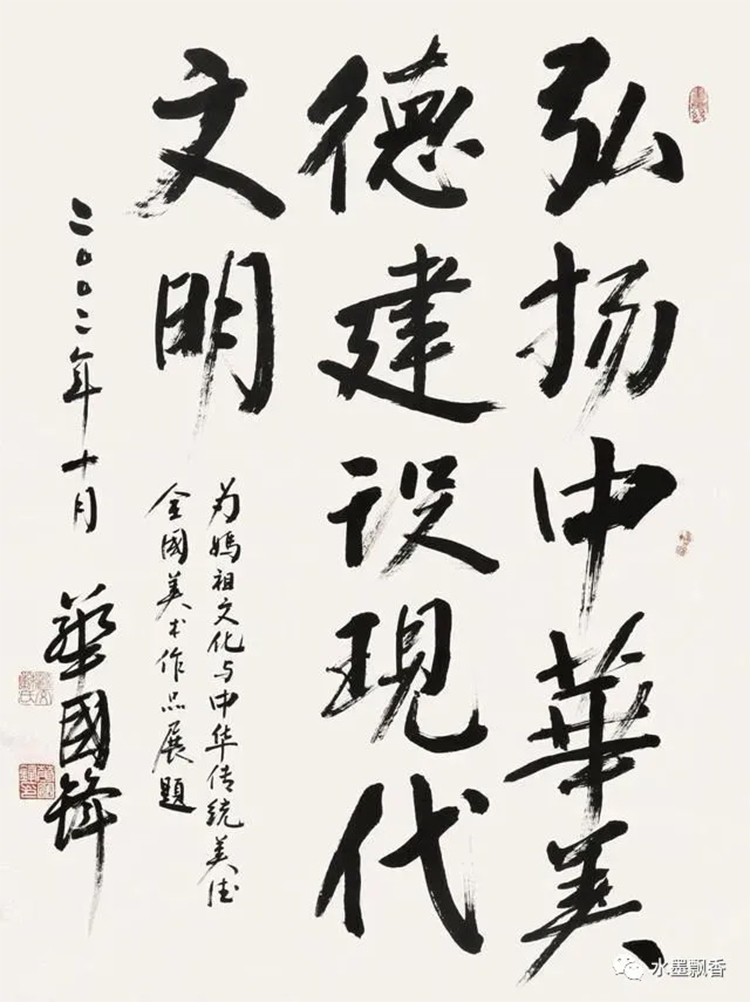 弘扬中華美
德建设現代
文明
为媽祖文化与中华传统美德
全國美术作品展題
二〇〇二年十月
華國鋒
水墨飘香